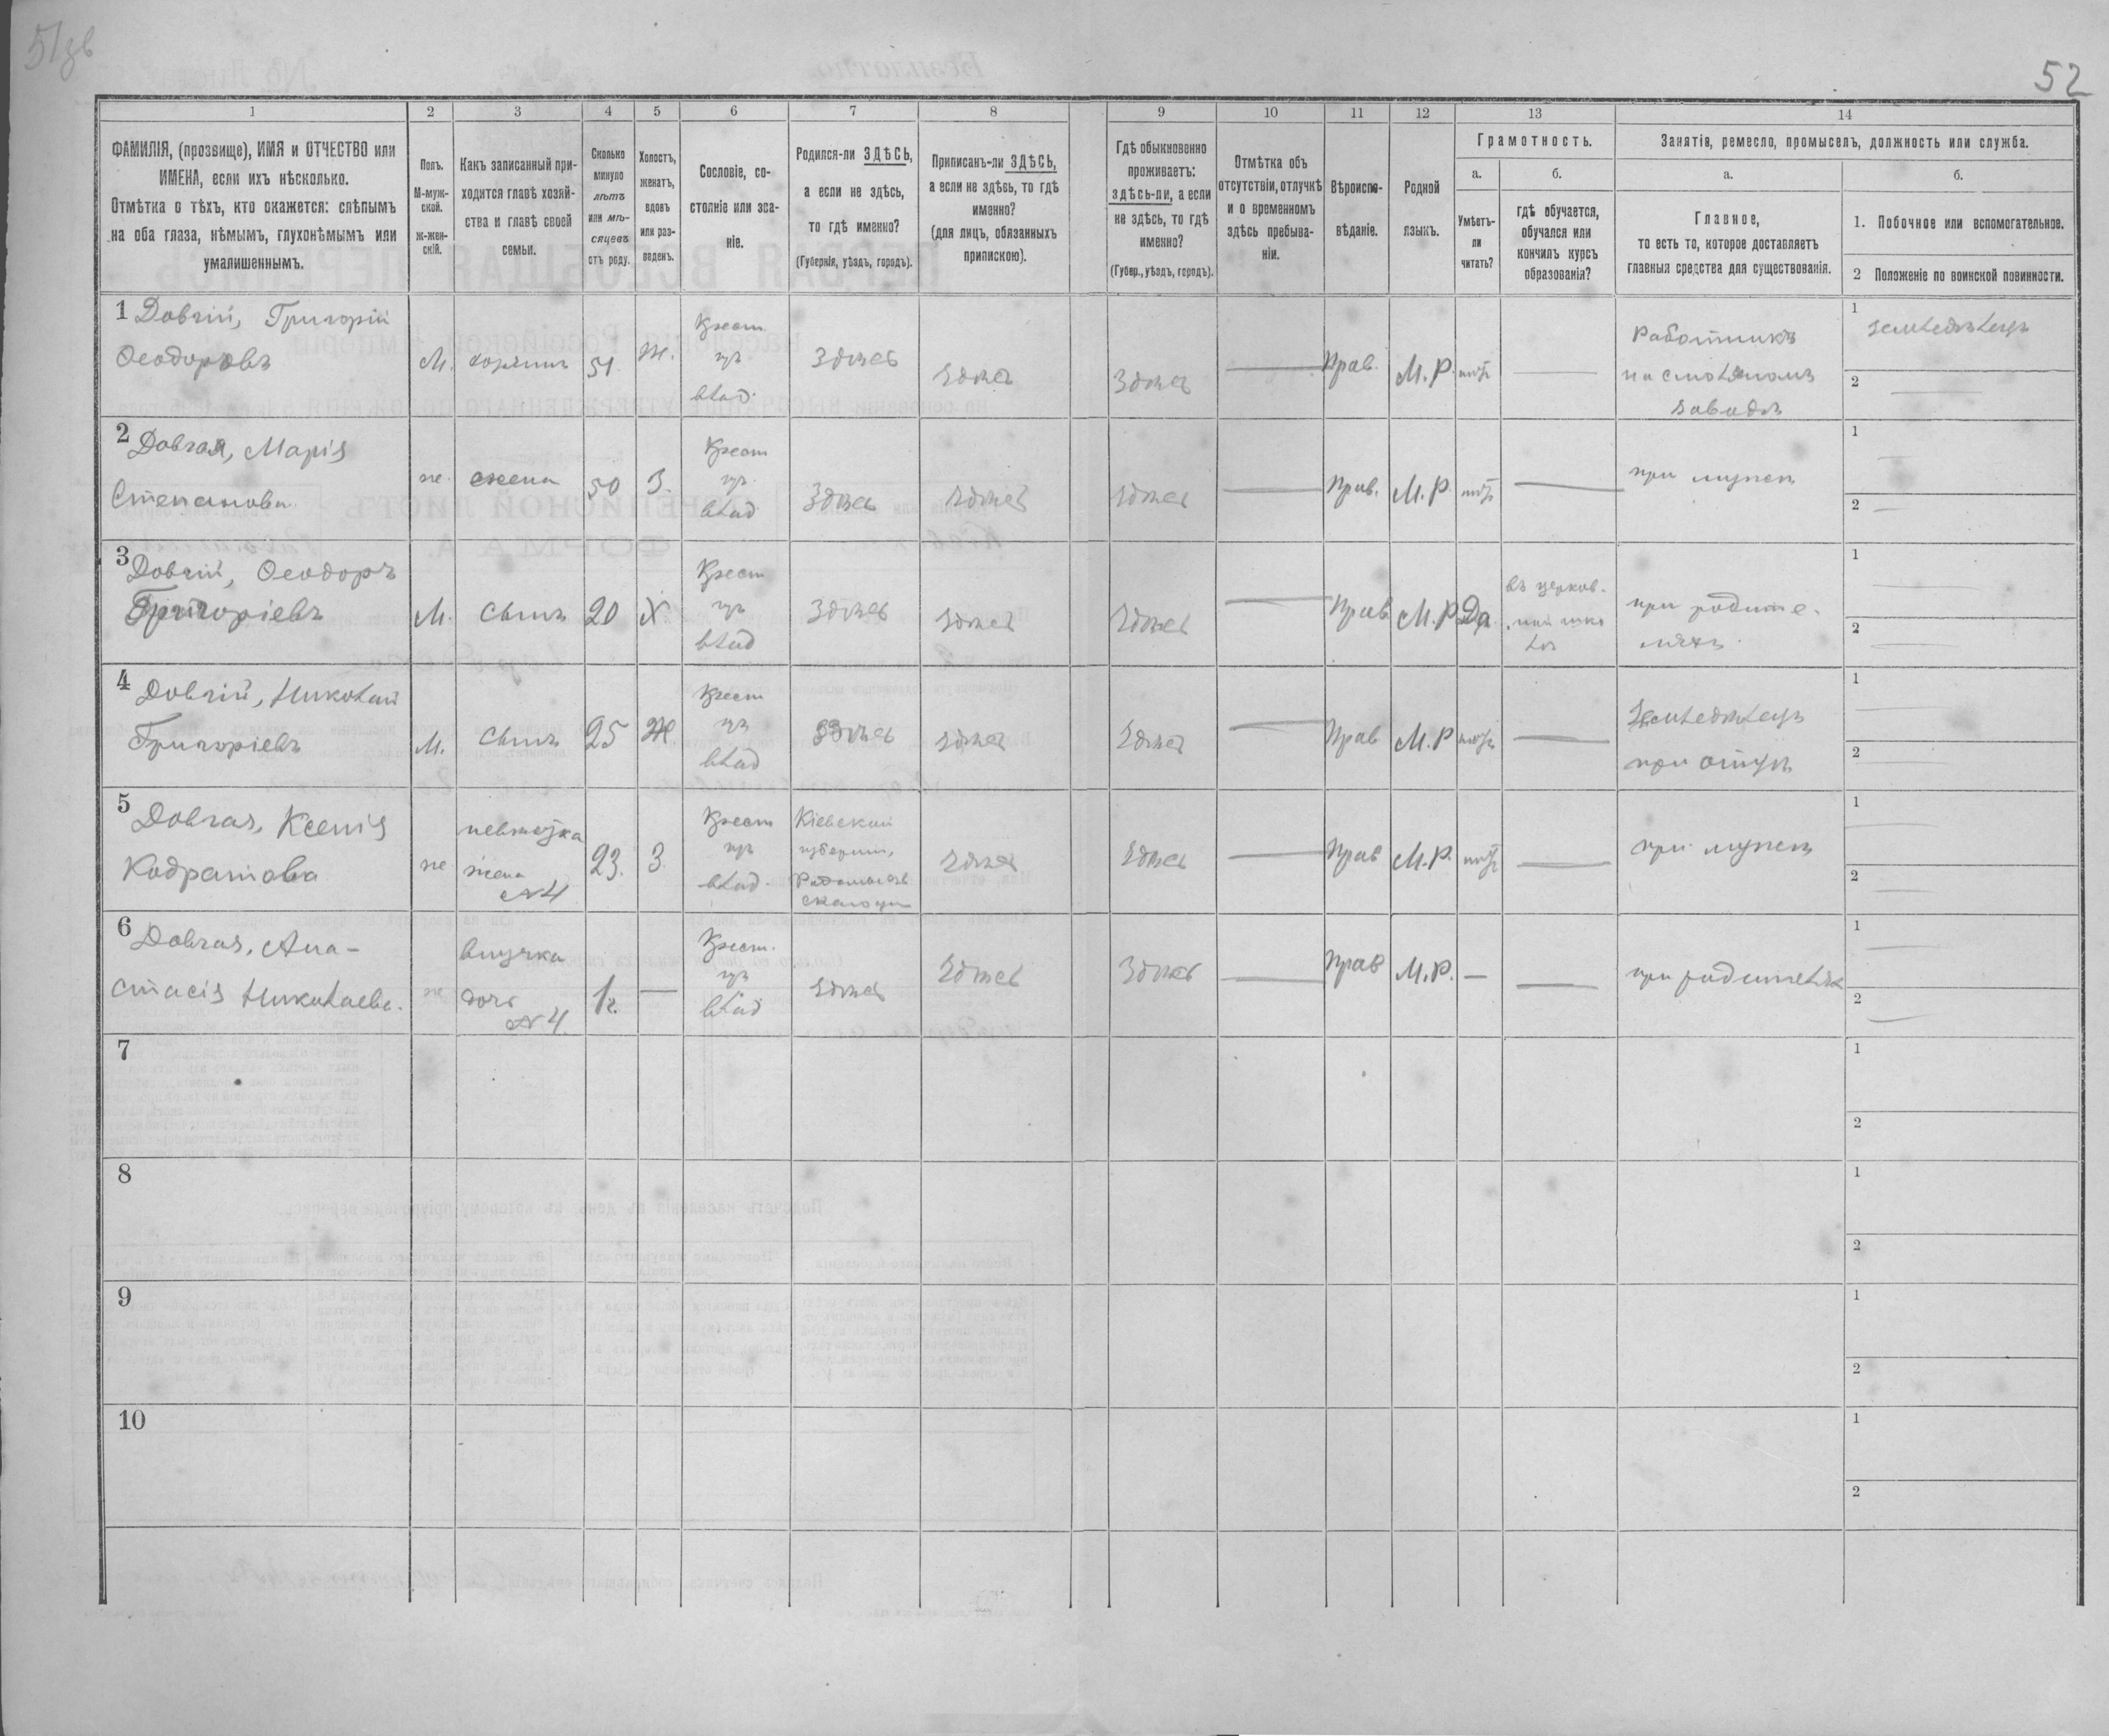 51зв
52
1
2
3
4
5
6
7
8
9
10
11
12
13
14
ФАМИЛІЯ, (прозвище), ИМЯ и ОТЧЕСТВО или
ИМЕНА, если ихъ нѣсколько.
Отмѣтка о тѣхъ, кто окажется: слѣпымъ
на оба глаза, нѣмымъ, глухонѣмымъ или
умалишеннымъ.
Полъ.
М-муж-
ской.
ж-жен-
скій.
Какъ записанный при-
ходится главѣ хозяй-
ства и главѣ своей
семьи.
Сколько
минуло
лѣтъ
или мѣ-
сяцевъ
отъ роду.
Холостъ,
женатъ,
вдовъ
или раз-
веденъ.
Сословіе, со-
стояніе или зва-
ніе.
Родился-ли ЗДѢСЬ,
а если не здѣсь,
то гдѣ именно?
(Губернія, уѣздъ, городъ).
Приписанъ-ли ЗДѢСЬ,
а если не здѣсь, то гдѣ
именно?
(для лицъ, обязанныхъ
припискою).
Гдѣ обыкновенно
проживаетъ:
здѣсь-ли, а если
не здѣсь, то гдѣ
именно?
(Губер., уѣздъ, городъ).
Отмѣтка объ
отсутствіи, отлучкѣ
и о временномъ
здѣсь пребыва-
ніи.
Вѣроиспо-
вѣданіе.
Родной
языкъ.
Грамотность.
а.
Умѣетъ-
ли
читать?
б.
гдѣ обучается,
обучался или
кончилъ курсъ
образованія?
Занятія, ремесло, промыселъ, должность или служба.
а.
Главное,
то есть то, которое доставляетъ
главныя средства для существованія.
б.
1. Побочное или вспомогательное.
2 Положеніе по воинской повинности.
1 Довгій, Григорій
Ѳеодоровъ
М.
хозяинъ
51
Ж.
Крест
изъ
влад.
Здѣсь
Здѣсь
Здѣсь
Прав.
М.Р.
нѣтъ
Работникъ
на смоляномъ
заводѣ
1
земледѣлецъ
2
2 Довгая, Марія
Степанова
ж.
жена
50
З.
Крест
изъ
влад
Здѣсь
Здѣсь
Здѣсь
Прав.
М.Р.
нѣтъ
при мужѣ
1
2
3 Довгій, Ѳеодоръ
Григоріевъ
М.
Сынъ
20
Х.
Крест
изъ
влад
Здѣсь
Здѣсь
Здѣсь
Прав
М.Р.
Да
въ церков-
ной шко
лѣ
при родите-
ляхъ
1
2
4 Довгій, Николай
Григоріевъ
М.
Сынъ
25
Ж
Крест
изъ
влад
Здѣсь
Здѣсь
Здѣсь
Прав
М.Р
нѣтъ
Земледѣлецъ
при отцѣ
1
2
5 Довгая, Ксенія
Кодратова
ж
невѣстка
жена
№4
23.
З.
Крест
изъ
влад.
Кіевской
губерніи,
Радомысль
скаго у
Здѣсь
Здѣсь
Прав
М.Р.
нѣтъ
при мужѣ
1
2
6 Довгая, Ана-
стасія Николаева.
ж
внучка
дочь
№4.
1г.
Крест.
изъ
влад
Здѣсь
Здѣсь
Здѣсь
Прав
М.Р.
при родителях
1
2
7
1
2
8
1
2
9
1
2
10
1
2